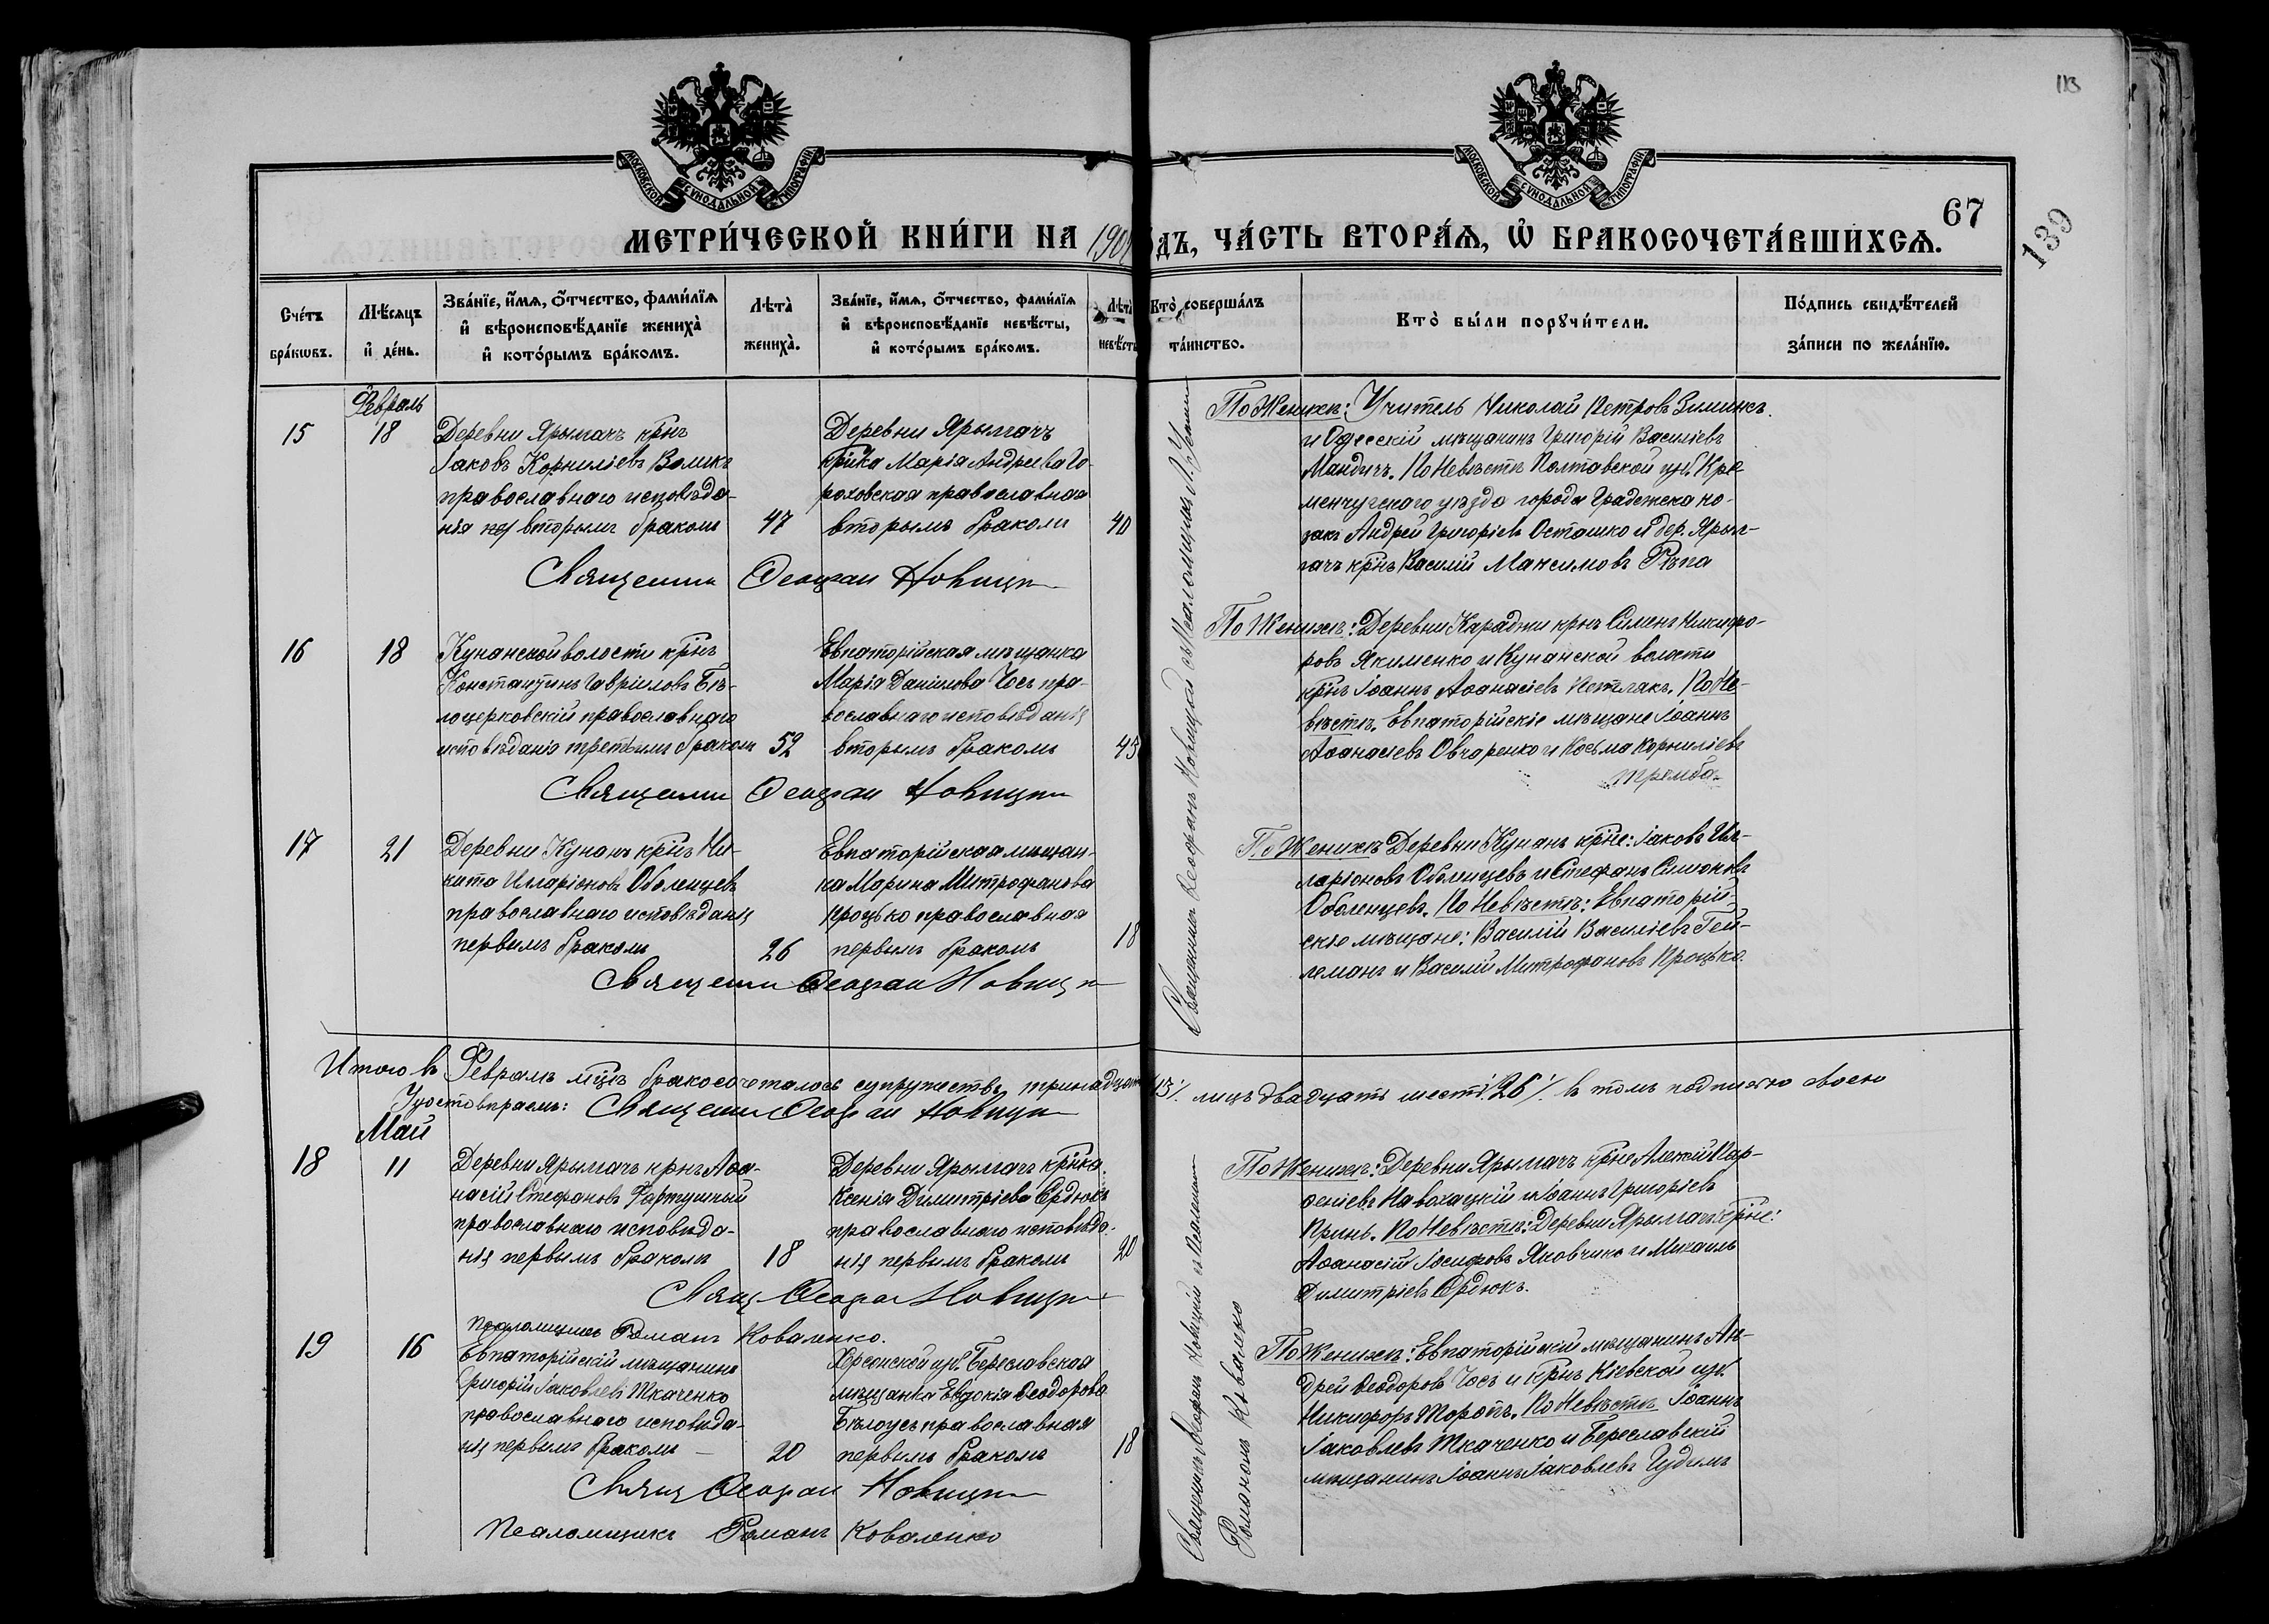 113
МОСКОВСКОЙ СѴНОДАЛЬНОЙ ТИПОГРАФІИ
МОСКОВСКОЙ СѴНОДАЛЬНОЙ ТИПОГРАФІИ
67
139
МЕТРИ́ЧЕСКОЙ КНИ́ГИ НА 190
дъ, ЧА́СТЬ ВТОРА́Ѧ, Ѡ БРАКОСОЧЕТА́ВШИХСѦ.
Сче́тъ бра́кѡвъ.
Мѣ́сяцъ и де́нь.
Зва́нїе, и́мѧ, ѻ́тчество, фами́лїѧ
и҆ вѣроисповѣ́данїе жениха̀
и҆ кото́рымъ бра́комъ.
Лѣта̀ жениха̀.
Зва́нїе, и́мѧ, ѻ́тчество, фами́лїѧ
и҆ вѣроисповѣ́данїе невѣ́сты,
и҆ кото́рымъ бра́комъ.
Лѣта̀ невѣ́ст
Кто̀ соверша́лъ та́инство.
Кто̀ бы́ли порꙋчи́тели.
По́дпись свидѣ́телей
за́писи по жела́нїю.
Февраль
15
18
Деревни Ярылгачъ крнъ
Іаковъ Корниліевъ Воликъ
православнаго исповѣда-
нія вторымъ бракомъ
47
Деревни Ярылгачъ
крнка Марія Андреева Го-
роховская православная
вторымъ бракомъ
40
По Женихѣ: Учитель Николай Петровъ
и Одесскій мѣщанинъ Григорій Василіевъ
Мандичъ. По Невѣстѣ Полтавской губ. Кре-
менчугскаго уѣзда города Градижска ко-
закъ Андрей Григоріевъ Осташко и дер. Ярыл-
гачъ крнъ Василій Максимовъ Рѣпа
Священникъ Ѳеофанъ Новицкій
16
18
Кунанской волости крнъ
Константинъ Гавріиловъ Бѣ-
лоцерковскій православнаго
исповѣданія третьимъ бракомъ
52
Евпаторійская мѣщанка
Марія Даніилова Чосъ пра-
вославнаго исповѣданія
вторымъ бракомъ
43
По Женихѣ: Деревни Караджи крнъ Симеонъ Никифо-
ровъ Якименко и Кунанской волости
крнъ Іоаннъ Аѳанасіевъ Петлякъ. По Не-
вѣстѣ. Евпаторійскіе мѣщане Іоаннъ
Аѳанасіевъ Овчаренко и Косьма Корниліевъ
Тремба.
Священникъ Ѳеофанъ Новицкій
17
21
Деревни Кунанъ крнъ Ни-
кита Илларіоновъ Оболенцевъ
православнаго исповѣданія
первымъ бракомъ
26
Евпаторійская мѣщан-
ка Марина Митрофанова
Процько православная
первымъ бракомъ
18
По Женихѣ Деревни Кунанъ крне: Іаковъ Ил-
ларіоновъ Оболенцевъ и Стефанъ Симоновъ
Оболенцевъ. По Невѣстѣ: Евпаторій-
скіе мѣщане: Василій Василіевъ Гей-
леманъ и Василій Митрофановъ Процько
Священникъ Ѳеофанъ Новицкій
Священникъ Ѳеофанъ Новицкій съ Псаломщикомъ
Итого въ Февралѣ м-цѣ бракосочеталось супружествъ тринадцать 13 /. лицъ двадцать шесть /. 26 /. въ томъ подписью своею
Удостовѣряемъ: Священникъ Ѳеофанъ Новицкій
Май
18
11
Деревни Ярылгачъ крнъ Аѳа-
насій Стефановъ Фартушный
православнаго исповѣда-
нія первымъ бракомъ
18
Деревни Ярылгачъ крнка
Ксенія Димитріева Ордюкъ
православнаго исповѣда-
нія первымъ бракомъ
20
По Женихѣ: Деревни Ярылгачъ крне Алексій Пар-
ѳеніевъ Навохацкій и Іоаннъ Григоріевъ
Принь. По Невѣстѣ: Деревни Ярылгачъ крне:
Аѳанасій Іосифовъ Яковчикъ и Михаилъ
Димитріевъ Ордюкъ.
Свящ Ѳеофанъ Новицкій
Псаломщикъ Романъ Коваленко.
19
16
Евпаторійскій мѣщанинъ
Григорій Іаковлевъ Ткаченко
православнаго исповѣда-
нія первымъ бракомъ
20
Херсонской губ. Береславская
мѣщанка Евдокія Ѳеодорова
Бѣлоусъ православная
первымъ бракомъ
18
По Женихѣ: Евпаторійскій мѣщанинъ Ан-
дрей Ѳеодоровъ Чосъ и крнъ Кіевской губ.
Никифоръ Торопъ. По Невѣстѣ Іоаннъ
Іаковлевъ Ткаченко и Береславскій
мѣщанинъ Іоаннъ Іаковлевъ Чудимъ
Свящ Ѳеофанъ Новицкій
Псаломщикъ Романъ Коваленко
Священникъ Ѳеофанъ Новицкій съ Псаломщ
Романомъ Коваленко